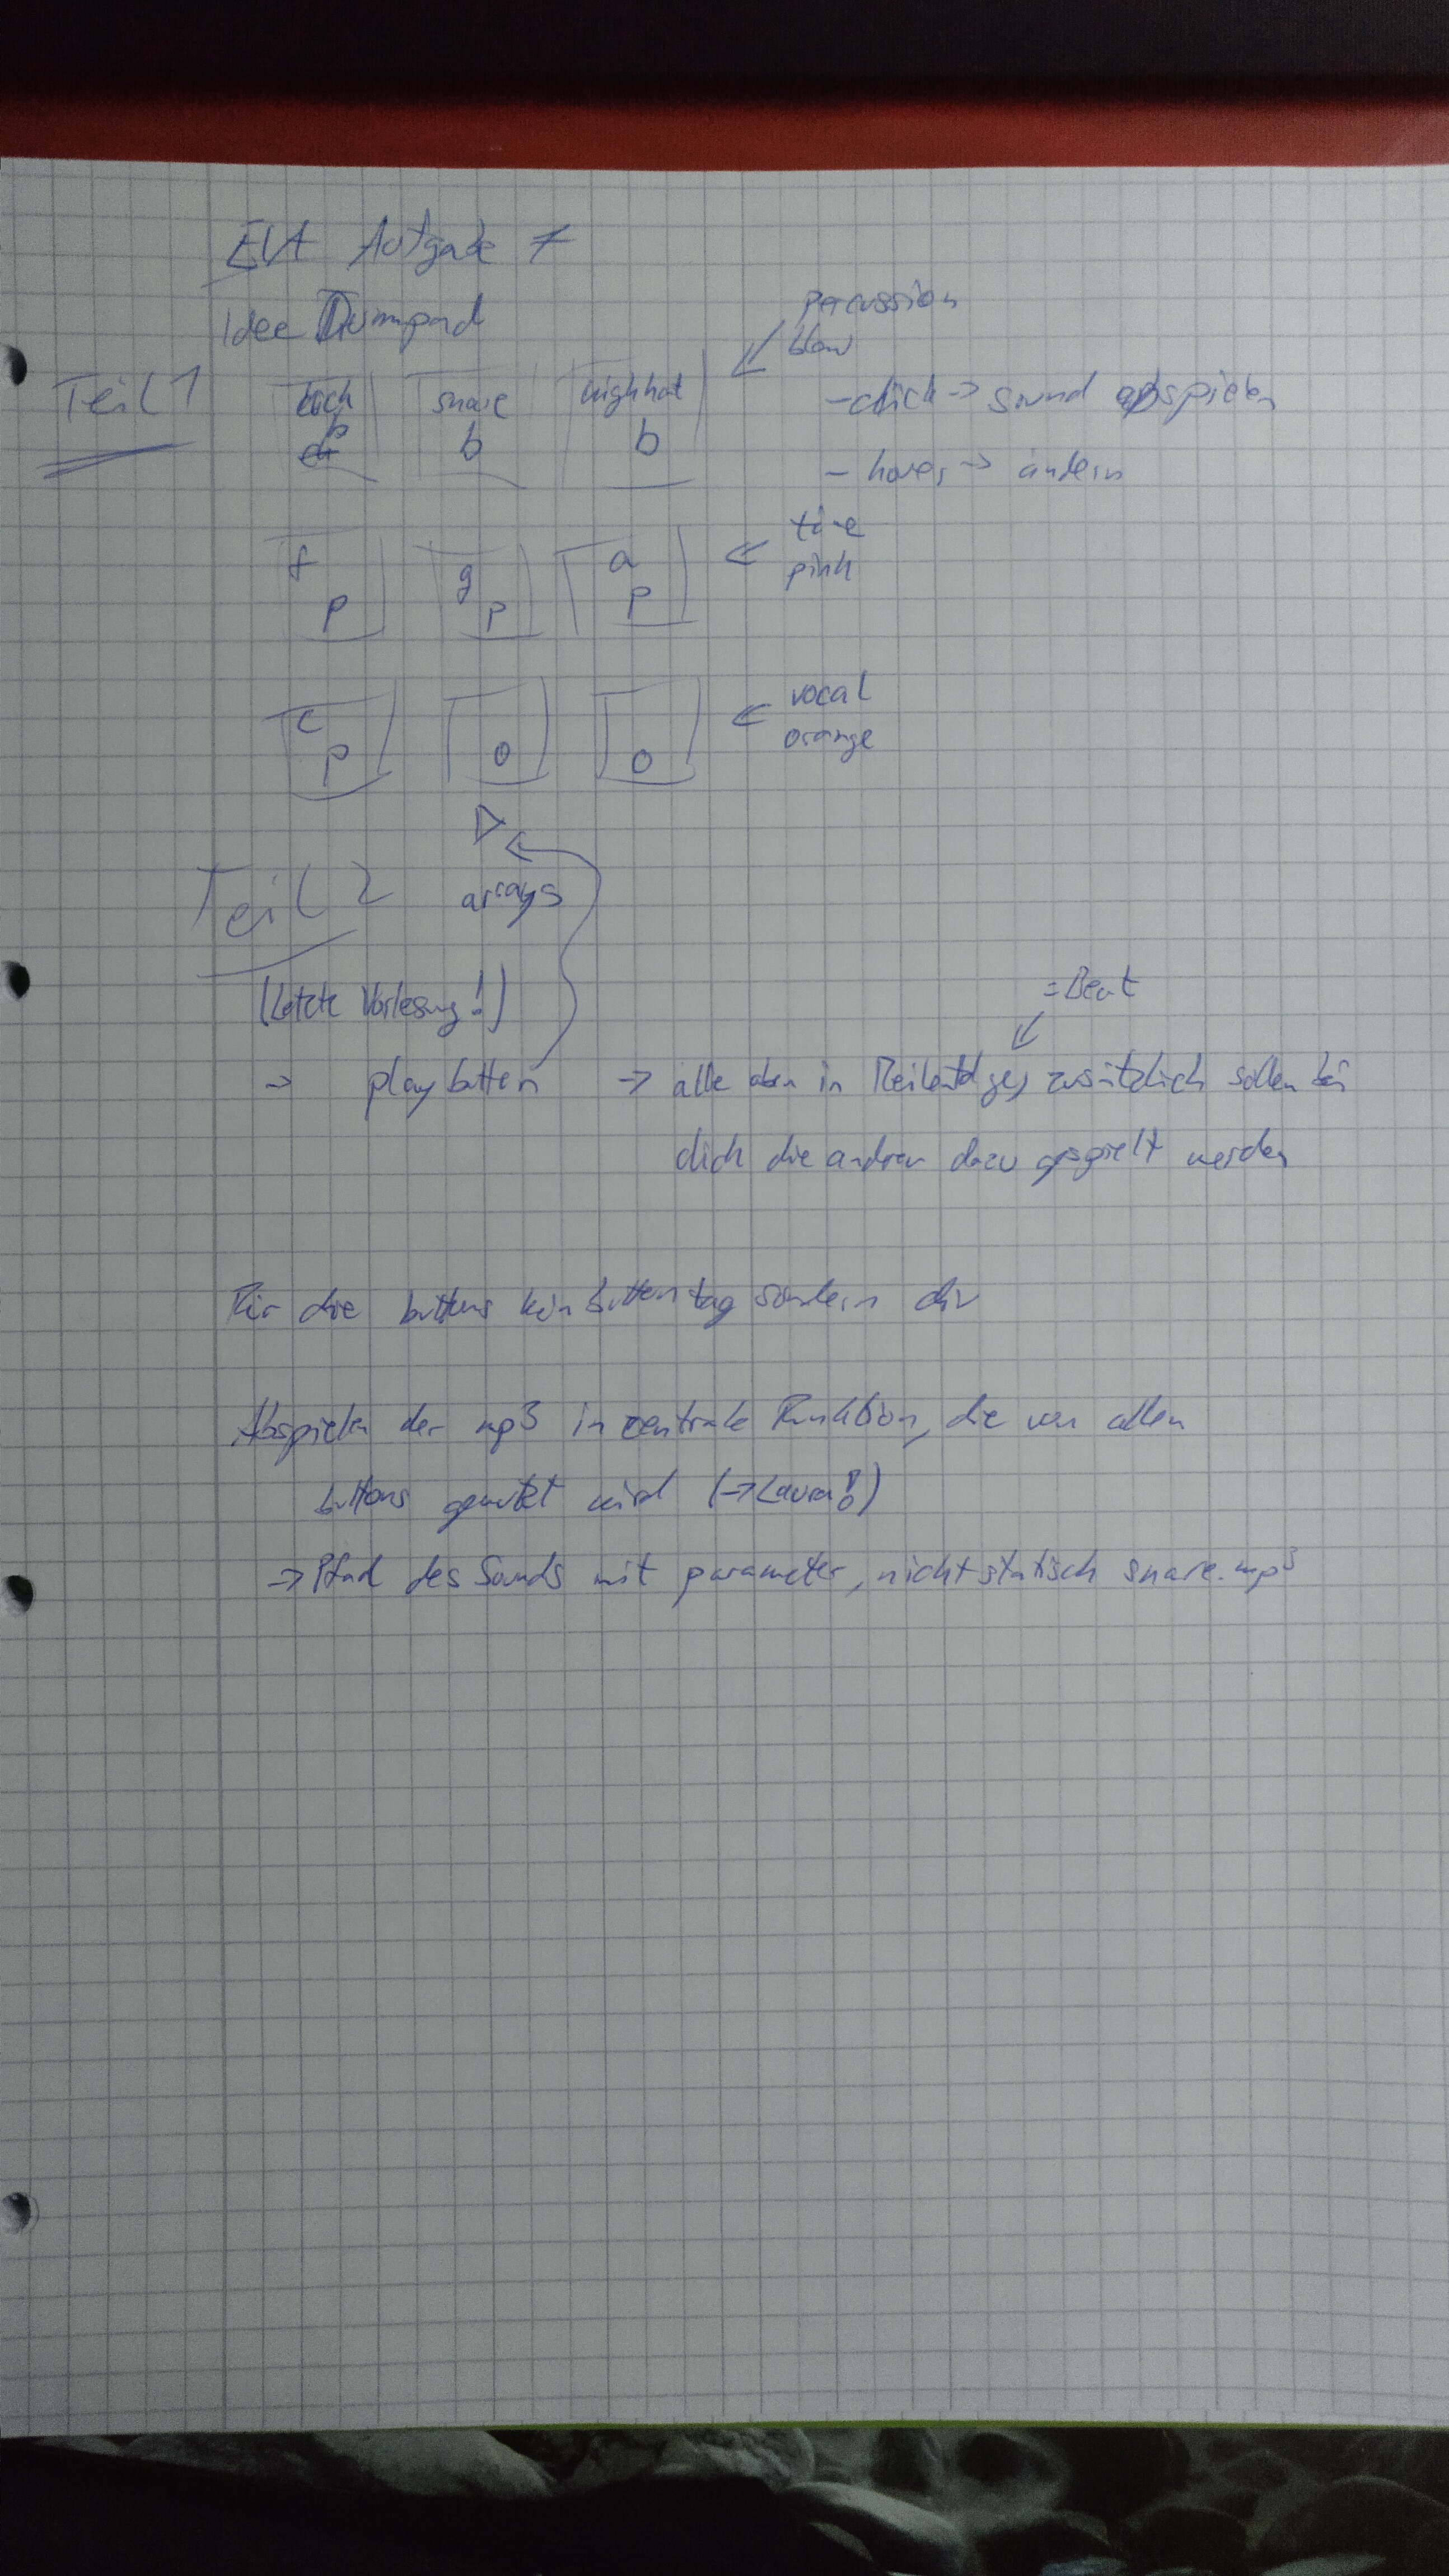 EIA Aufgabe 7
Idee Drumpad
Teil 1
kick snare highhat
b b b
percussion
blau
- click -> sound abspielen
- hover -> ändern
f g a
p p p
töne
pink
c
p o o
vocal
orange
Teil 2
arrays
(Letzte Vorlesung!)
=Beat
-> playbutton -> alle oben in Reihenfolge, zusätzlich sollen bei
click die andren dazu gespielt werden
Für die buttons kein button tag sondern div
Abspielen der mp3 in zentrale Funktion, die von allen
buttons genutzt wird (-> Laura!)
-> Pfad des Sounds mit parameter, nicht statisch snare.mp3